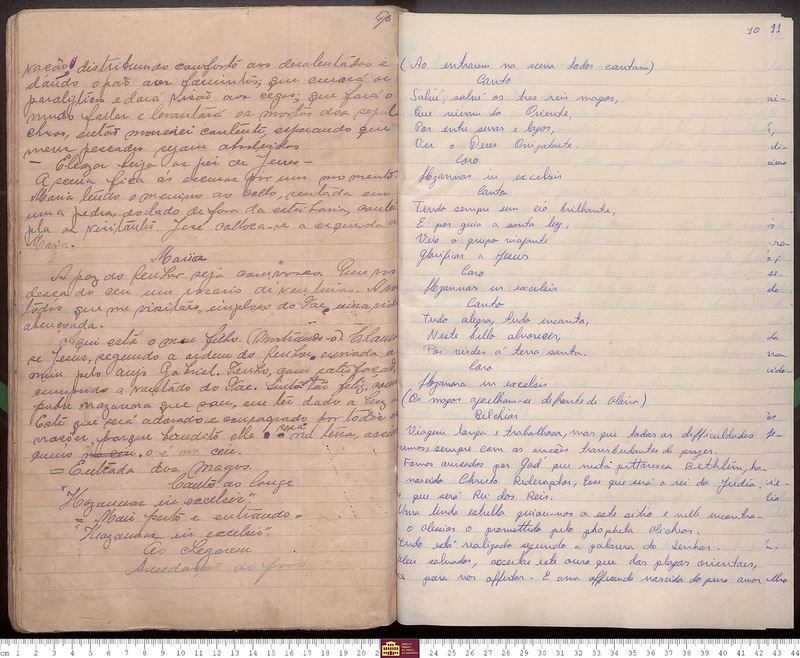 vação, distribuindo conforto aos desalentados e
dando o pão aos famintos; que curará os
paralyticos e dará visão aos cegos; que fará o
mudo fallar e levantará os mortos dos sepul
chros, então morrerei contente, esperando que
meus peccados sejam absolvidos
— Elezar beija os pés de Jesus —
A scena fica ás escuras por um momento
Maria tendo o menino ao collo, sentada em
uma pedra, do lado de fora da estribaria, contem
pla os visitantes. José colloca-se a esquerda de
Maria.
Maria
A paz do Senhor seja comvosco. Que vos
desça do ceu um rosario de venturas. A vós
todos que me visitaes, imploro do Pae, uma vida
abençoada.
Aqui está o meu filho. (Mostrando-o) Chama
se Jesus, segundo a ordem do Senhor, enviada a
mim pelo anjo Gabriel. Tenho, com satisfação,
cumprido a vontade do Pae. Sinto tão feliz, a
pobre nazarena que sou, em ter dado a luz
Este que será adorado e consagrado por todas as
nações, porque bendito elle será na terra, assim
como o é no ceu.
= Entrada dos magos.
Canto ao longe
"Hozannas in excelsis".
= Mais perto e entrando =
"Hozannas in excelsis".
Ao chegarem
10 11
(Ao entrarem na scena todos cantam)
Canto
Salvé, salvé os tres reis magos,
Que vieram do Oriente,
Por entre serras e lagos,
Ver o Deus Onipotente.
Coro
Hozannas in excelsis
Canto
Tendo sempre um céo brilhante,
E por guia a santa luz,
Veio o grupo viajante
Glorificar a Jesus
Coro
Hozannas in excelsis
Canto
Tudo alegra, tudo encanta,
Neste bello alvorecer,
Por virdes á terra santa.
Coro
Hozanna in excelsis
(Os magos ajoelham-se defronte de Maria)
Belchior
Viagem longa e trabalhosa, mas que todas as difficuldades
vemos, sempre com os corações transbordantes de prazer.
Fomos avisados por Gad que nesta pittoresca Bethlém, ha-
nascido Christo Redemptor, Esse que será o rei da Judéa,
e que será Rei dos Reis.
Uma linda estrella guiou-nos a este sitio e nelle encontra-
o Messias o promettido pelo propheta Micheas.
tudo está realizado segundo a palavra do Senhor.
Meu salvador, acceitae este ouro que das plagas orientaes,
para vos offertar. E uma offerenda nascida do puro amor